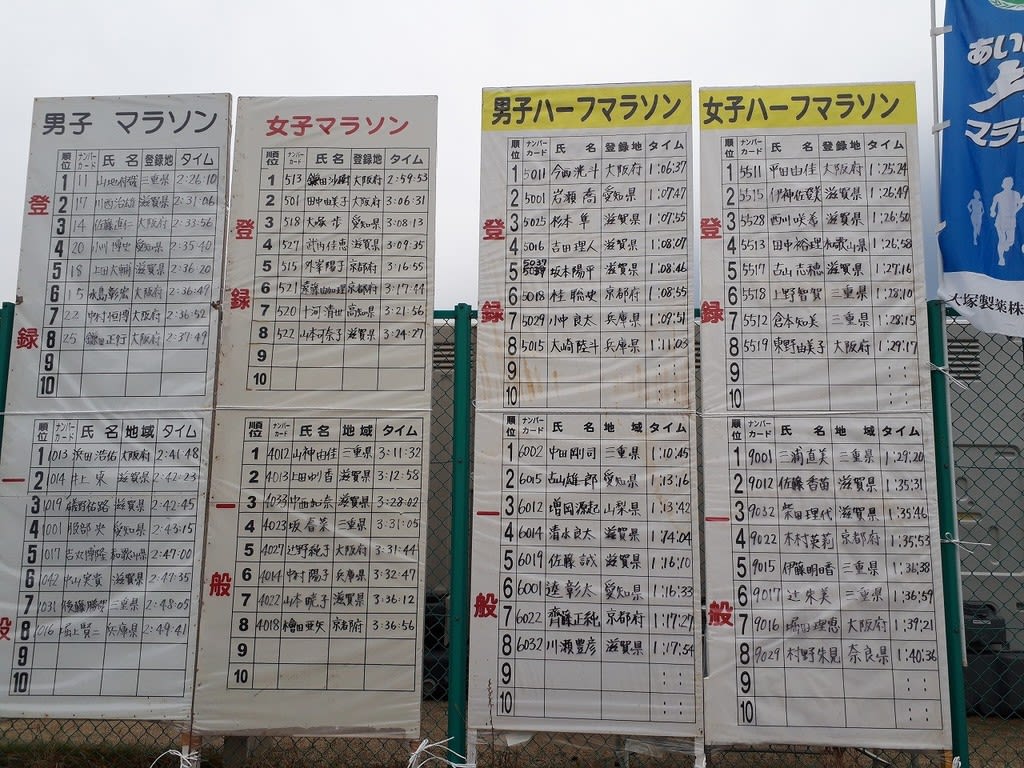 男子 マラソン
登録
順位 ナンバーカード 氏名 登録地 タイム
1 11 三重県 2:26:10
2 17 川西治雄 滋賀県 2:31:06
3 14 佐藤直仁 大阪府 2:33:56
4 20 小川博史 愛知県 2:35:40
5 18 上田大輔 滋賀県 2:36:20
6 15 水島彰宏 大阪府 2:36:49
7 22 中村恒博 大阪府 2:36:52
8 25 鎌田正行 大阪府 2:37:49
9
10
一般
順位 ナンバーカード 氏名 地域 タイム
1 1013 浜田浩佑 大阪府 2:41:48
2 1014 井上 東 滋賀県 2:42:23
3 1019 礒野佑路 滋賀県 2:42:45
4 1001 服部 央 愛知県 2:43:15
5 1017 和歌山県 2:47:00
6 1042 滋賀県 2:47:35
7 1031 後藤勝栄 三重県 2:48:05
8 1016 堀上賢二 兵庫県 2:49:41
9
10
女子マラソン
登録
順位 ナンバーカード 氏名 登録地 タイム
1 513 鎌田沙樹 大阪府 2:59:53
2 501 田中由美子 大阪府 3:06:31
3 518 大塚 歩 愛知県 3:08:13
4 527 武内佳恵 滋賀県 3:09:35
5 515 外峯陽子 京都府 3:16:55
6 521 遠藤由加理 京都府 3:17:44
7 520 十河清世 高知県 3:21:56
8 522 山本可奈子 滋賀県 3:24:27
9
10
一般
順位 ナンバーカード 氏名 地域 タイム
1 4012 山神由佳 三重県 3:11:32
2 4013 上田ゆり香 滋賀県 3:12:58
3 4033 中西加奈 滋賀県 3:28:02
4 4023 坂 春菜 三重県 3:31:05
5 4027 辻野綾子 大阪府 3:31:44
6 4014 中村陽子 兵庫県 3:32:47
7 4022 山本暁子 滋賀県 3:36:12
8 4018 檜田亜矢 京都府 3:36:56
9
10
男子ハーフマラソン
登録
順位 ナンバーカード 氏名 登録地 タイム
1 5011 今西洸斗 大阪府 1:06:37
2 5001 岩瀬 喬 愛知県 1:07:47
3 5025 杉本 隼 滋賀県 1:07:55
4 5016 吉田理人 滋賀県 1:08:07
5 5037 坂本陽平 滋賀県 1:08:46
6 5018 桂 聡史 京都府 1:08:55
7 5029 小中良太 兵庫県 1:09:51
8 5015 大崎陸斗 兵庫県 1:11:03
9
10
一般
順位 ナンバーカード 氏名 地域 タイム
1 6002 中田剛司 三重県 1:10:45
2 6015 古山雄一郎 愛知県 1:13:16
3 6012 増岡源起 山梨県 1:13:42
4 6014 清水良太 滋賀県 1:14:04
5 6019 佐藤 誠 滋賀県 1:16:10
6 6001 遠 彰太 愛知県 1:16:33
7 6022 齊藤正純 京都府 1:17:27
8 6032 川瀬豊彦 滋賀県 1:17:54
9
10
女子ハーフマラソン
登録
順位 ナンバーカード 氏名 登録地 タイム
1 5511 平田由佳 大阪府 1:25:24
2 5515 伊神佐登美 滋賀県 1:26:49
3 5528 西川咲希 滋賀県 1:26:50
4 5513 田中裕理 和歌山県 1:26:58
5 5517 古山志穂 滋賀県 1:27:16
6 5518 上野智賀 三重県 1:28:10
7 5512 倉本知美 三重県 1:28:15
8 5519 東野由美子 大阪府 1:29:17
9
10
一般
順位 ナンバーカード 氏名 地域 タイム
1 9001 三浦直美 三重県 1:29:20
2 9012 佐藤香苗 滋賀県 1:35:31
3 9032 柴田理代 滋賀県 1:35:46
4 9022 木村英莉 京都府 1:35:53
5 9015 伊藤明日香 三重県 1:36:38
6 9017 辻 朱美 三重県 1:36:59
7 9016 堀田理恵 大阪府 1:39:21
8 9029 村野朱見 奈良県 1:40:36
9
10
あい
上
マラ
大塚製薬株